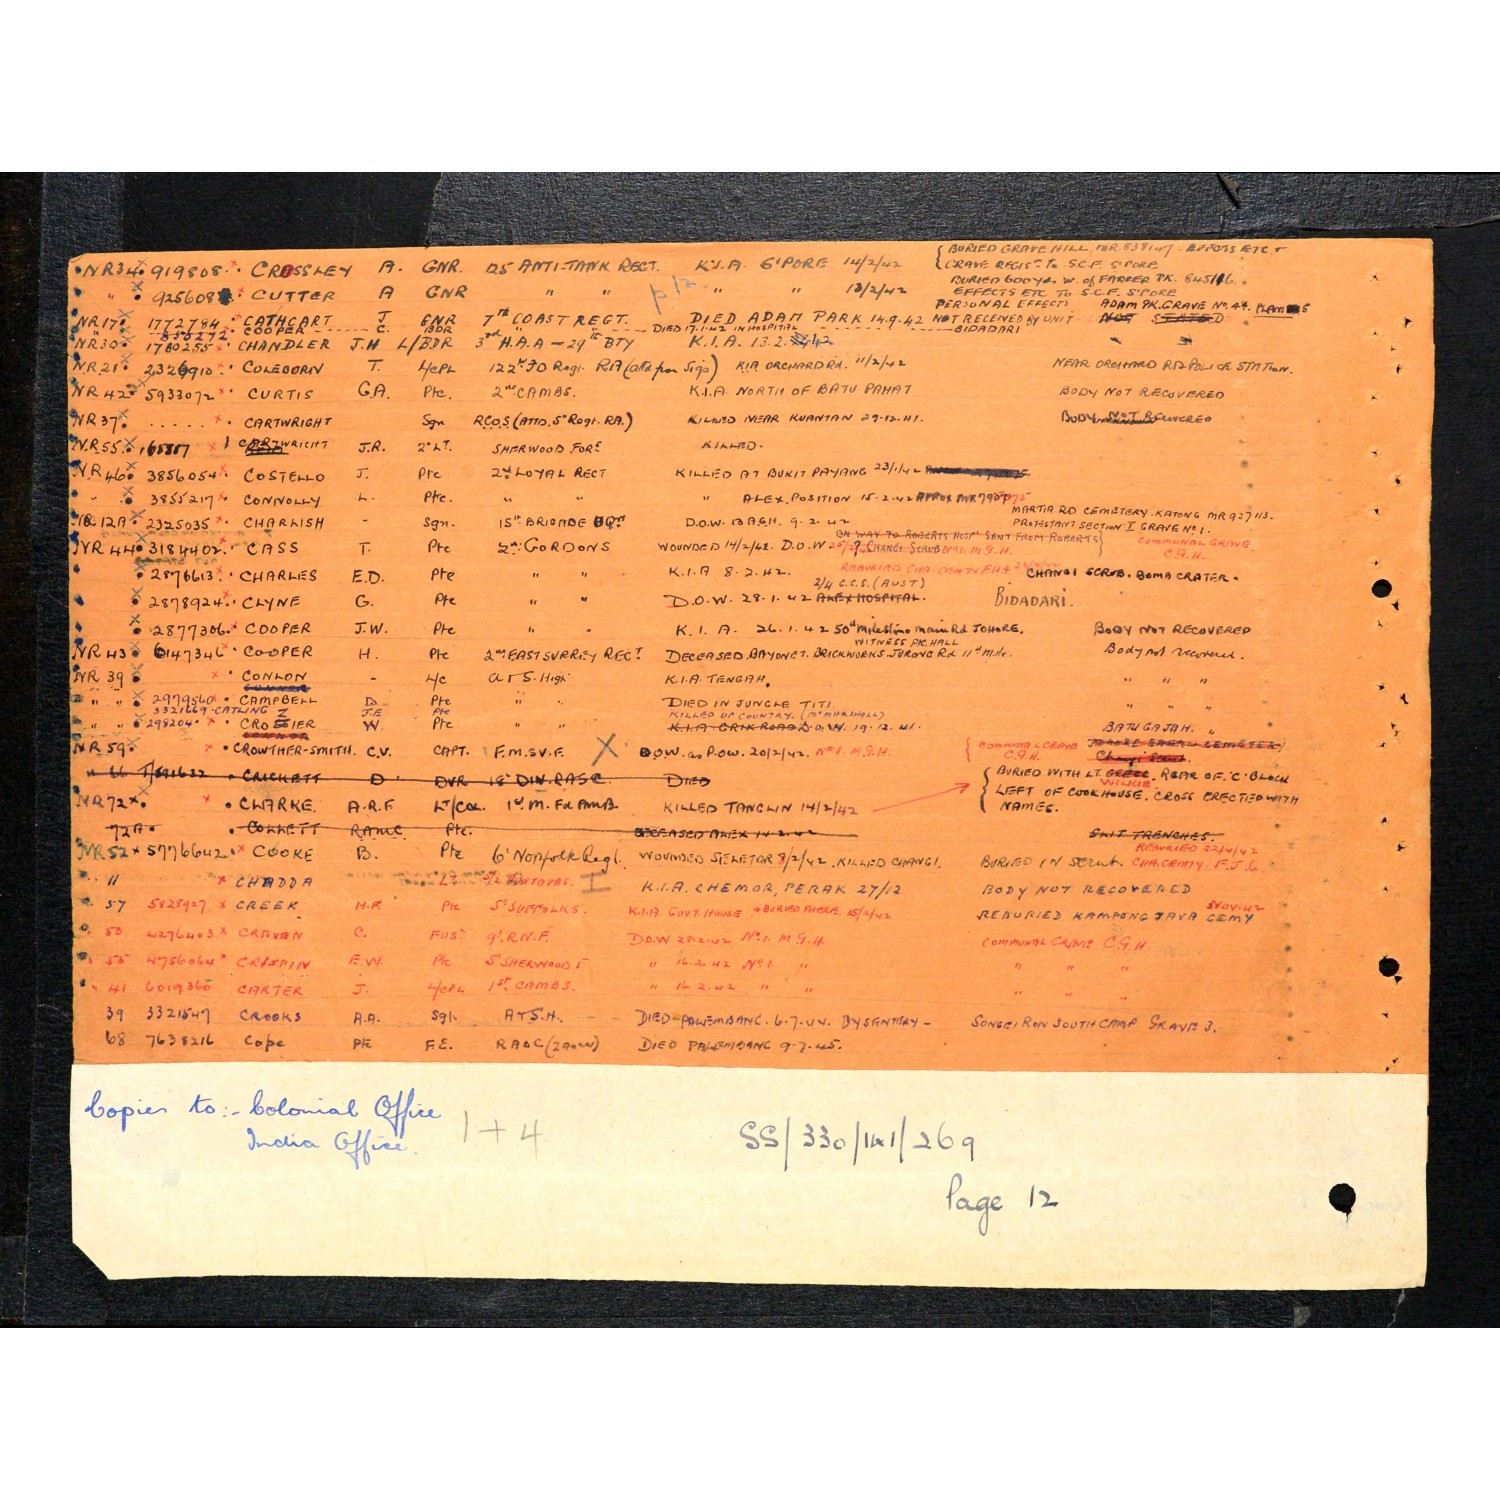 { BURIED GRAVE HILL. MR 838147. EFFECTS ETC &
NR34. 919808. CROSSLEY A. GNR. 125 ANTI-TANK REGT. K.I.A. S'PORE 14/2/42 GRAVE REGIST. TO S.C.F. S'PORE
" 925608 CUTTER A GNR " " " " 13/2/42 BURIED 600 yds. W. of FARRER PK. 845/16.
EFFECTS ETC TO S.C.F. S'PORE
NR17. 1772784. CATHCART J GNR 7th COAST REGT. DIED ADAM PARK 14.9.42 PERSONAL EFFECTS NOT RECEIVED BY UNIT ADAM PK. GRAVE No. 44. NOT STATED
COOPER C. BDR DIED 17.1.42 IN HOSPITAL BIDADARI
NR30. 1780255 CHANDLER J.H L/BDR 3rd H.A.A - 29th BTY K.I.A. 13.2. " "
NR21. 2326910. COLEBORN T. L/CPL 122nd FD Regt. RA (attd from Sigs) KIA ORCHARD Rd. 11/2/42 NEAR ORCHARD RD POLICE STATION.
NR42. 5933072. CURTIS G.A. Pte. 2nd CAMBS. K.I.A. NORTH OF BATU PAHAT BODY NOT RECOVERED
NR37. . . . . . CARTWRIGHT Sgn RCOS (ATTD. 5th Regt. RA.) KILLED NEAR KUANTAN 29.12.41. BODY NOT RECOVERED
NR55. 165817 CARTWRIGHT J.R. 2nd Lt. SHERWOOD FORS KILLED.
NR46. 3856054 COSTELLO J. Pte 2nd LOYAL REGT KILLED AT BUKIT PAYANG 23/1/42
" 3855217 CONNOLLY L. Pte. " " " ALEX. POSITION 15.2.42 APPROX MR 790
NR12A. 2325035. CHARLISH - Sgn. 15th BRIGADE HQrs D.O.W. B.A.G.H. 9.2.42 MARTIA RD CEMETERY. KATONG MR 927113.
PROTESTANT SECTION I GRAVE No 1.
ON WAY TO ROBERTS HOSP. SENT FROM ROBERTS }
NR44. 3184402. CASS T. Pte 2nd GORDONS WOUNDED 14/2/42. D.O.W ? CHANGI SCRUB No 1. M.G.H. COMMUNAL GRAVE
C.G.H.
2876613. CHARLES E.D. Pte " " K.I.A 8.2.42. CHANGI SCRUB. BOMB CRATER.
2/4 C.C.S. (AUST)
2878924. CLYNE G. Pte " " D.O.W. 28.1.42 ALEX HOSPITAL. BIDADARI.
2877306. COOPER J.W. Pte " " K.I.A. 26.1.42 50th Milestone main Rd JOHORE. BODY NOT RECOVERED
WITNESS Pte. HALL
NR43. 6147346 COOPER H. Pte 2nd EAST SURREY REGT DECEASED. BAYONET. BRICKWORKS. JURONG Rd. 11th Mile. Body not recovered.
NR39 CONLON - L/c A & S. High K.I.A. TENGAH. " " "
" " 2979560. CAMPBELL D Pte " " DIED IN JUNGLE TITI " " "
3321669. CATLING J.E Pte KILLED UP COUNTRY. (Mr MARSHALL)
" " 298204. CROSSIER W. Pte " " K.I.A. GRIK ROAD D.O.W. 19.12.41. BATU GAJAH. "
NR59. CROWTHER-SMITH. C.V. CAPT. F.M.S.V.F. X D.O.W. as P.O.W. 20/2/42. No 1. M.G.H. { COMMUNAL GRAVE C.G.H. Changi Scrub.
" 66 T/ CRICKETT D DVR 18th DIV. RASC. DIED
NR72. CLARKE. A.R.F LT/COL. 1st M. Fd Amb. KILLED TANGLIN 14/2/42 { BURIED WITH LT. WILKIE. REAR OF. 'C' BLOCK
LEFT OF COOKHOUSE. CROSS ERECTED WITH
NAMES.
72A. COLLETT RAMC. Pte. DECEASED ALEX 14.2.42 SKIT TRENCHES.
NR52 5776642. COOKE B. Pte 6th Norfolk Regt. WOUNDED SELETAR /2/42. KILLED CHANGI. BURIED IN SCRUB REBURIED 22/4/42 CHA. CEMTY. F.J.6.
" 11 CHADDA Lt K.I.A. CHEMOR, PERAK 27/12 BODY NOT RECOVERED
" 57 5828927 CREEK H.F. Pte 5th SUFFOLKS. K.I.A. GOVT. HOUSE & BURIED THERE. 15/2/42 REBURIED KAMPONG JAVA CEMY NOV. 42
" 50 4276403 CRAVEN C. FUS. 9th R.N.F. D.O.W 28.2.42 No 1. M.G.H. COMMUNAL GRAVE C.G.H.
" 55 4756064 CRISPIN E.W. Pte 5th SHERWOOD F " 16.2.42 No 1. " " " "
" 41 6019360 CARTER J. L/CPL 1st CAMBS. " 16.2.42 " " " " "
39 3321547 CROOKS A.A. Sgt. A & S.H. DIED - PALEMBANG. 6.7.44. DYSENTERY - SONGEI RON SOUTH CAMP GRAVE 3.
68 7638216 Cope Pte F.E. RAOC DIED PALEMBANG 9.7.45.
Copies to:- Colonial Office
India Office.
1 + 4
SS/330/141/269
Page 12